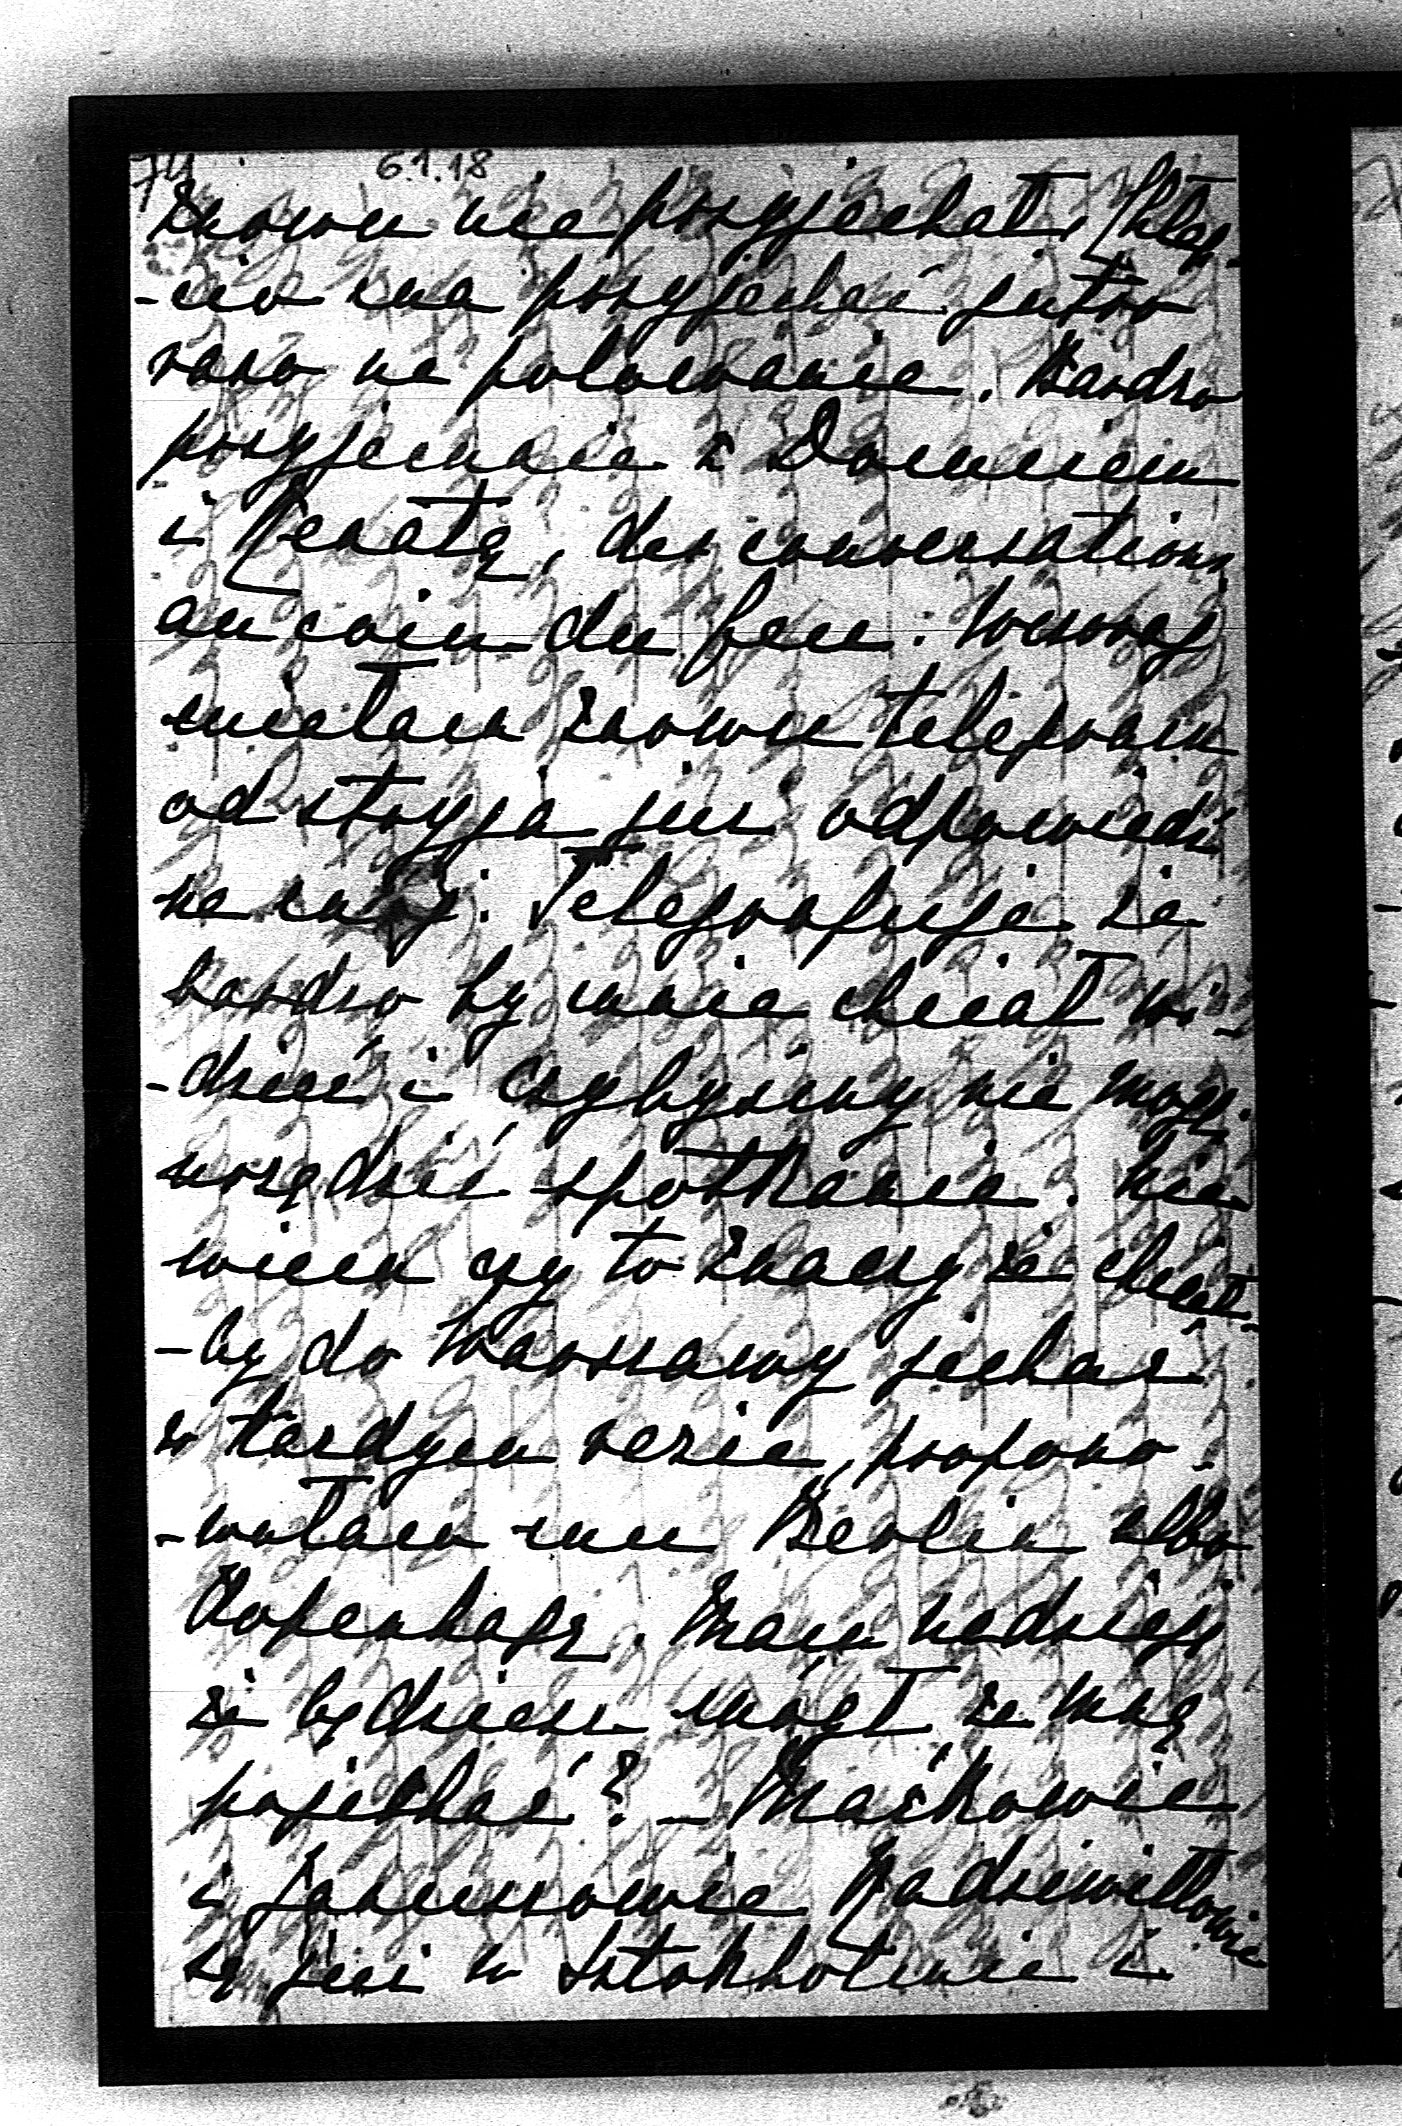 74 6.1.18
znowu nie przyjechał,
-no ma przyjechać jutro
rano na polowanie. Bardzo
przyjemnie z Dominiem
i Renatą, des conversations
au coin du feu. Wczoraj
miałam znowu telegram
od stryja już odpowiedź
na mój. Telegrafuje że
bardzo by mnie chciał wi-
-dzieć i czybyśmy nie mogli
urządzić spotkania. Nie
wiem czy to znaczy że chciał-
-by do Warszawy jechać
w każdym razie propono-
-wałam mu Berlin albo
Kopenhagę. Mam nadzieję
że będziesz mógł ze mną
pojechać? – Maćkowie
i Januszowie Radziwiłłowie
są już w Sztokholmie i